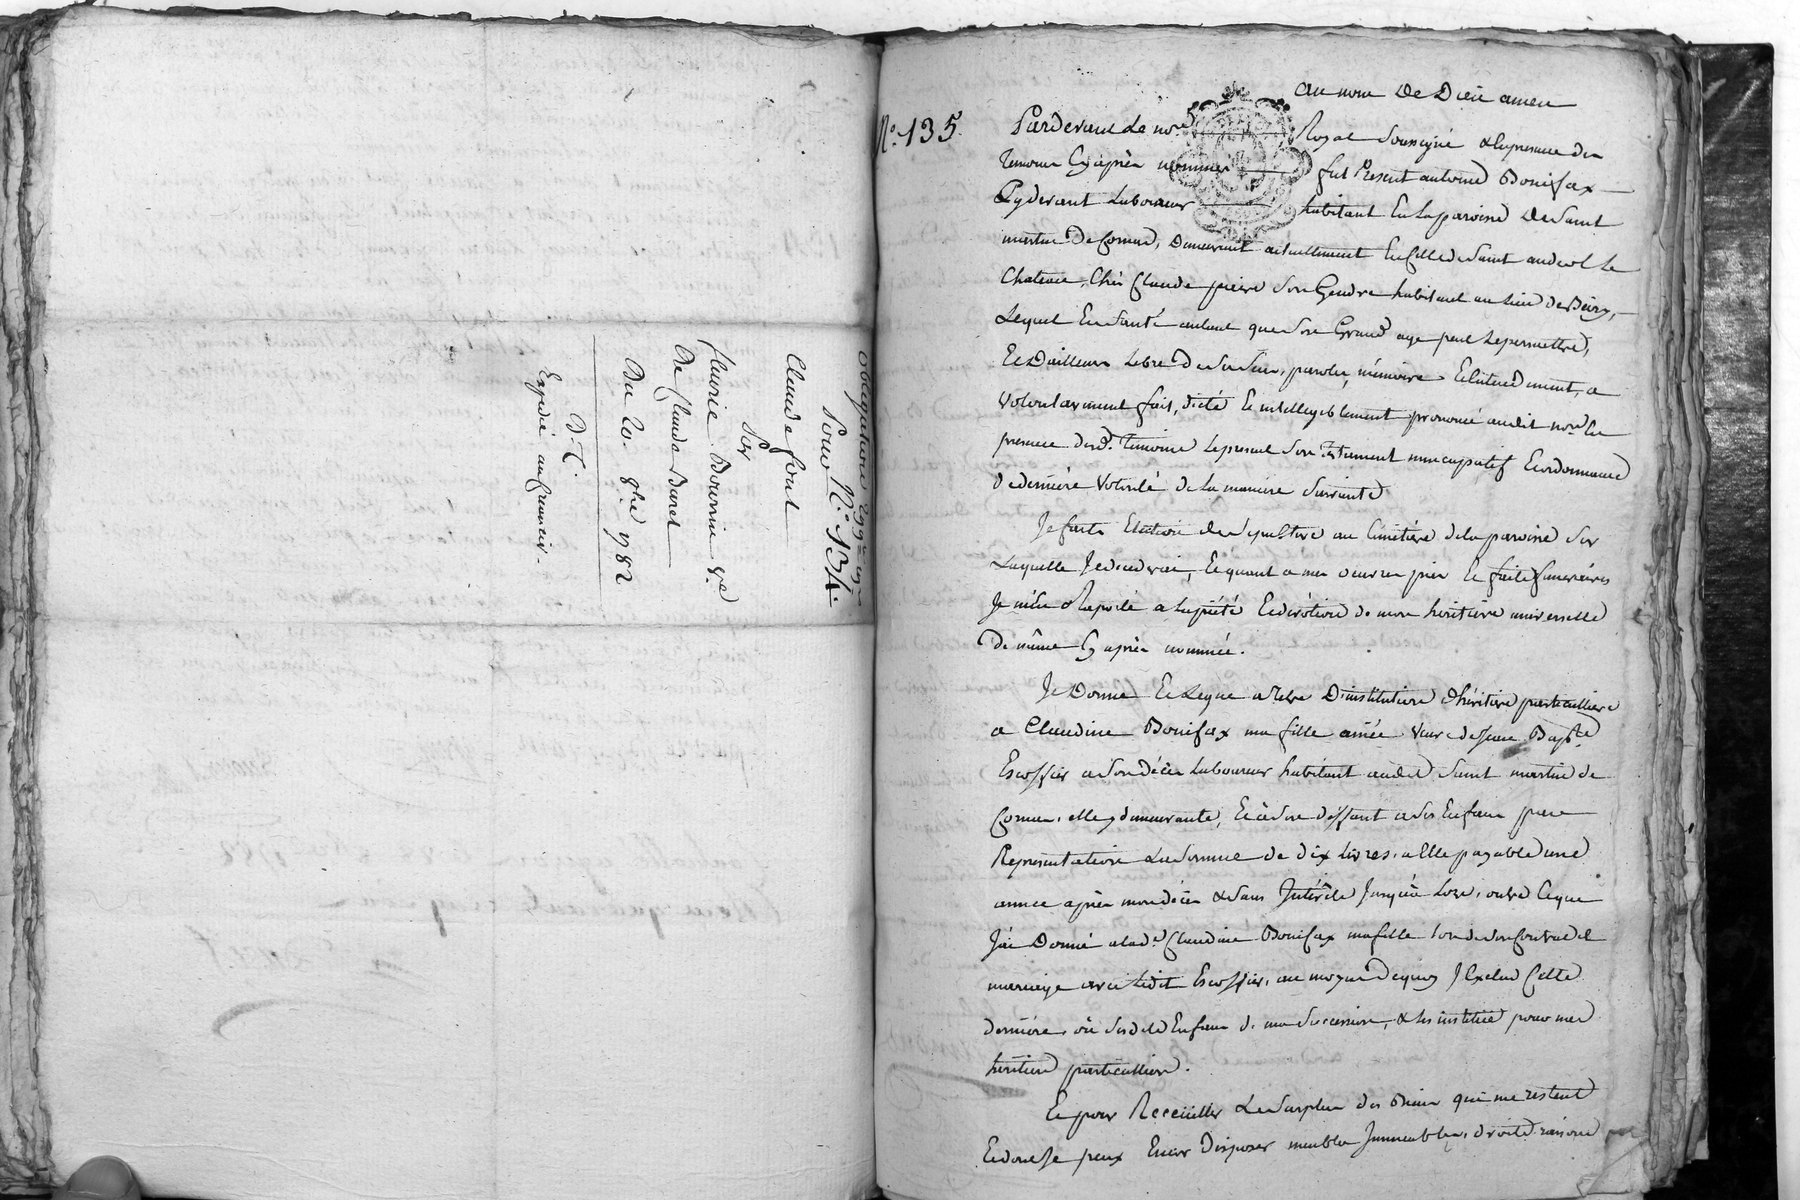 obligation
Pour N.° 134.
Claude font
Sur
fleurie Bouvrin v.e
De Claude Baret
Du 20. 8bre 1782
D. C.
Expedié au creancier.
N.° 135.
au nom De Dieu amen
Pardevant Le no.re Royal soussigné & En presence des
Temoins Cy après nommés fut Present antoine Bonifax
Cy devant Laboureur habitant En La paroisse De Saint
martin De Cornas, Demeurant actuellement En Celle de Saint andeol le
Chateau, Chés Claude pierre Son Gendre habitant au Lieu de
Lequel En Santé autant que Son Grand age peut Le permettre,
Et D'ailleurs Libre De Ses Sens, parole, mémoire & Entendement, a
volontairement fait, dicté & intelligiblement prononcé audit no.re En
presence desd. Temoins Le present Son Testament nuncupatif Et ordonnance
De derniére volonté de La maniere Suivante
Je fais Election de Sepulture au Cimétiére de La paroisse Sur
Laquelle Je decederai, Et quant a mes oeuvres pies Et frais funeraires
Je m'En Raporte a La piété Et dévotion de mon heritiére universelle
De même Cy après nommée.
Je Donne Et Legue a titre D'institution D'héritiére particulliere
a Claudine Bonifax ma fille ainée veuve de Jean Bapt.e
Escoffier a Son décès Laboureur habitant audit Saint martin de
Cornas, elle y demeurante, Et à Son deffaut a Ses Enfans par
Representation La Somme de dix Livres a Elle payable une
année après mon décès & Sans Intérêts Jusqu'à Lors, outre Ce que
J'ai Donné a lad.e Claudine Bonifax ma fille Lors de Son Contrat de
mariage avec Ledit Escoffier, au moyen De quoy J'Exclus Cette
derniére ou Sesdits Enfans de ma Succession, & Les institue pour mes
héritiers particulliers.
Et pour Receüillir Le Surplus des Biens qui me restent
Et dont Je peux Encor Disposer meubles Immeubles, droits raisons